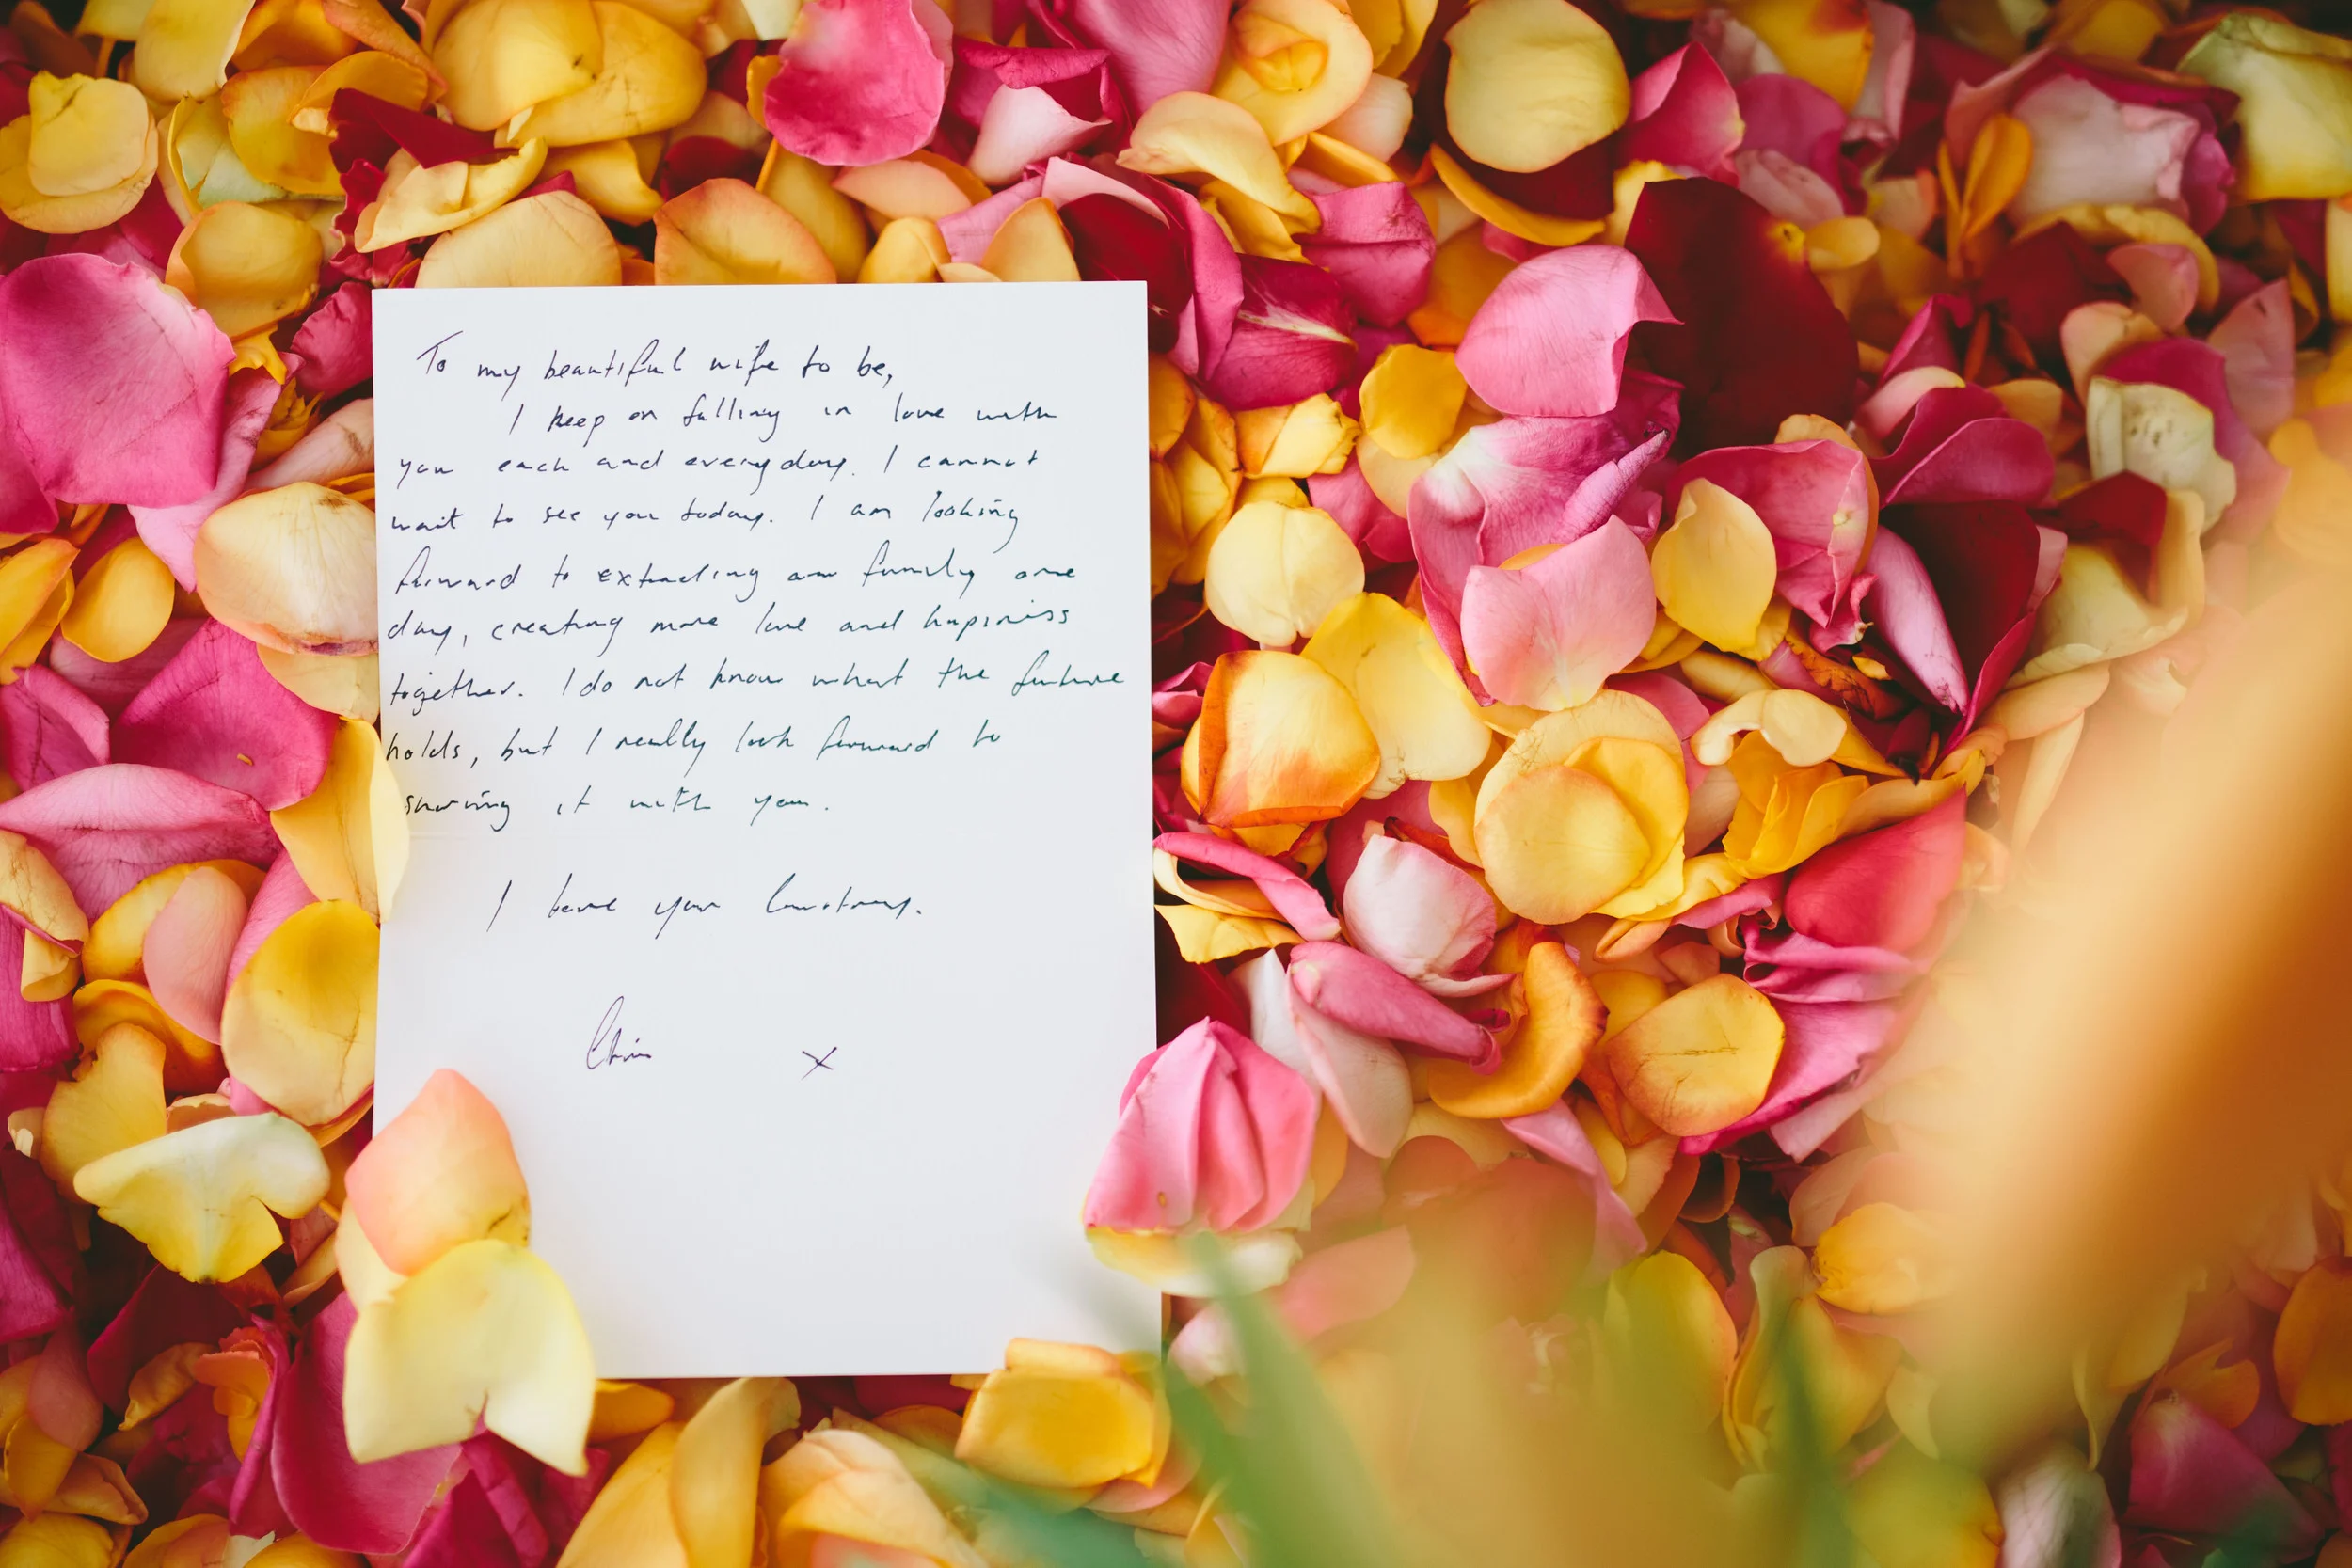 To my beautiful wife to be,
I keep on falling in love with
you each and everyday. I cannot
wait to see you today. I am looking
forward to extending our family one
day, creating more love and happiness
together. I do not know what the future
holds, but I really look forward to
sharing it with you.
I love you
Chris x